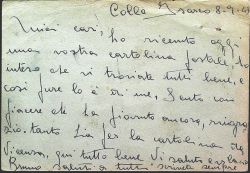 Colle Isarco 8-9-41
Miei cari, ho ricevuto oggi
una vostra cartolina postale, ho
inteso che vi trovate tutti bene, e
così pure lo è di me, Sento con
piacere che ha giunto ancora,
zio, tanto Lia per la cartolina da
Vicenza, qui tutto bene. Vi saluto
Bruno saluti a tutti